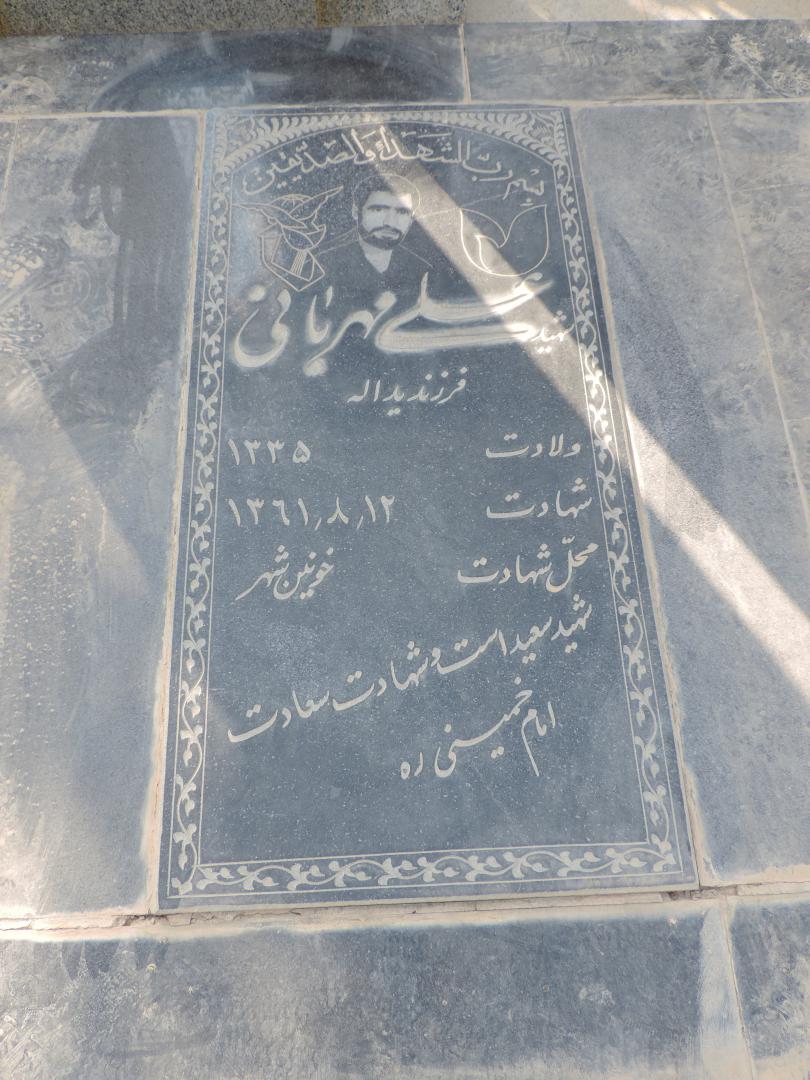 بسم رب الشهداء والصدیقین
شهید علی مهربانی
فرزند یداله
ولادت ۱۳۳۵
شهادت ۱۳۶۱٫۸٫۱۲
محلّ شهادت خونین شهر
شهید سعید است و شهادت سعادت
امام خمینی ره